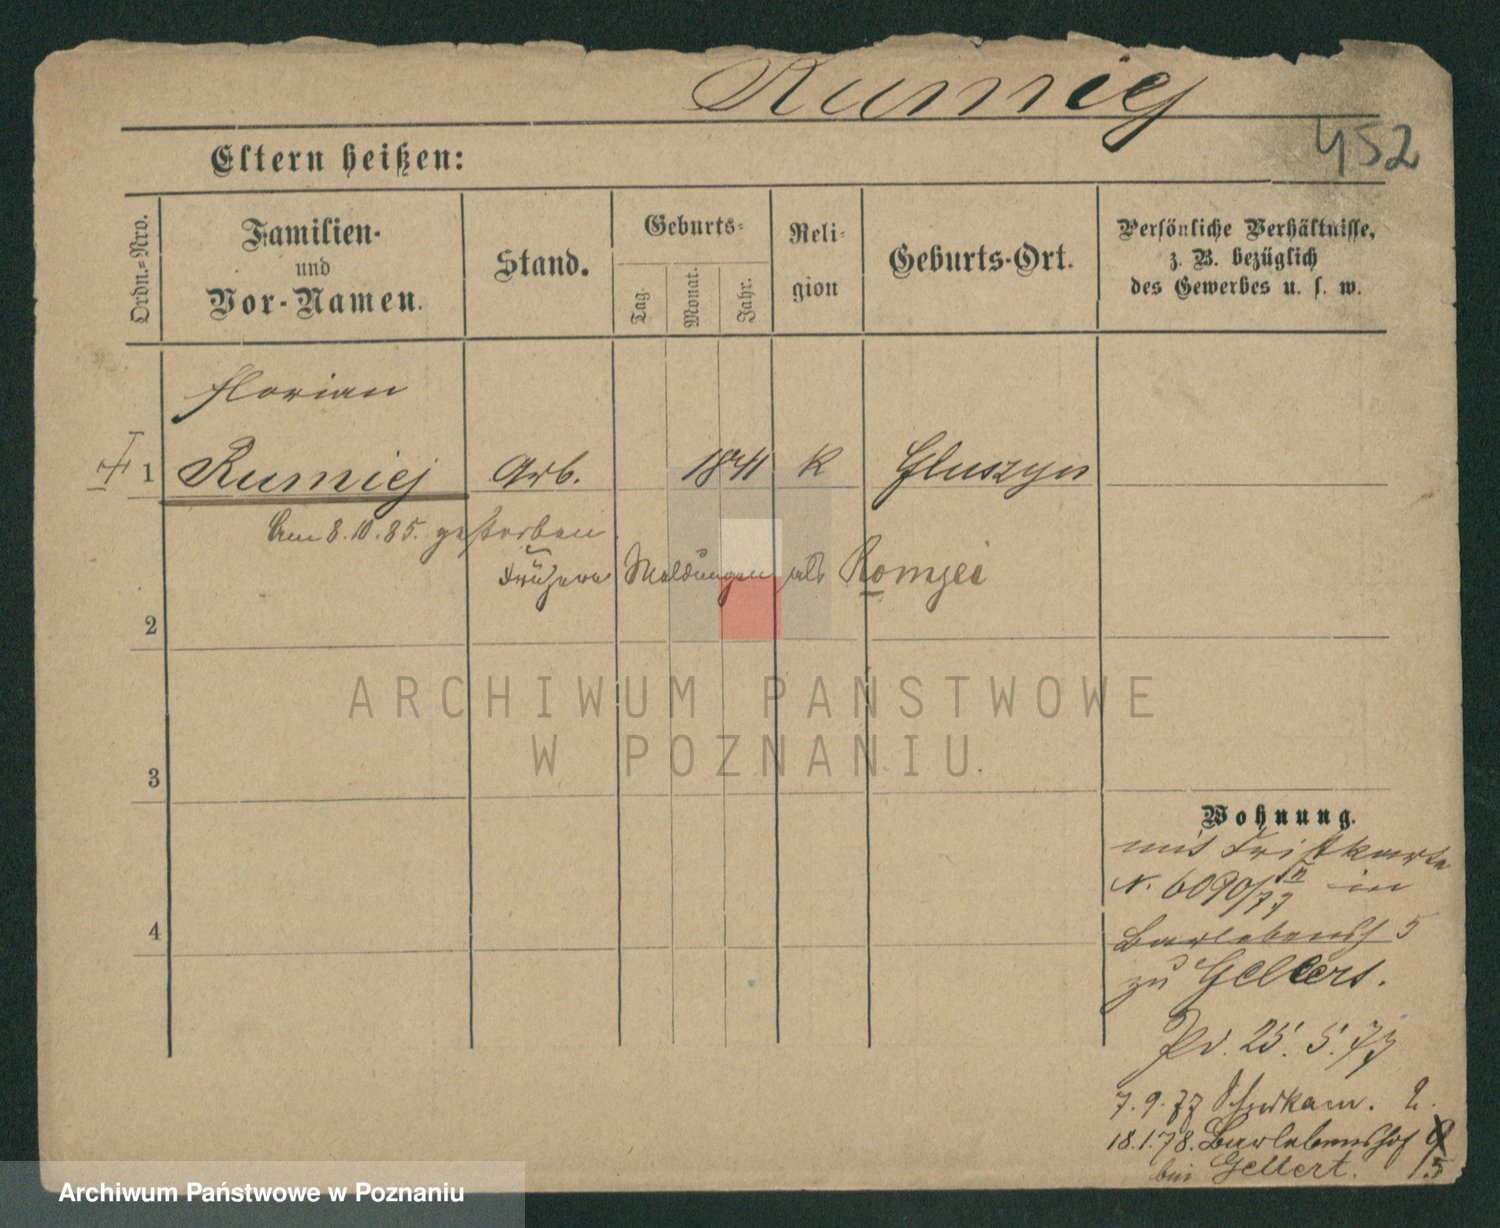 Rumiej
452
Eltern heißen:
Ordn.-Nro.
Familien-
und
Vor-Namen.
Stand.
Geburts-
Tag.
Monat.
Jahr.
Reli-
gion
Geburts-Ort.
Persönliche Verhältnisse,
z. B. bezüglich
des Gewerbes u. s. w.
Florian
1 Rumiej Arb. 1841 K Gluszyn
Am 8.10.85. gestorben.
Frühere Meldungen als Romjei
2
ARCHIWUM PAŃSTWOWE
W POZNANIU
3
Wohnung.
mit Fristkarte
N. 6090/77 in
4
Barlebenshf 5
zu Gellert.
25. 5. 77
7. 9. 77 2.
18.1.78. Barlebenshof
bei Gellert. 5
Archiwum Państwowe w Poznaniu